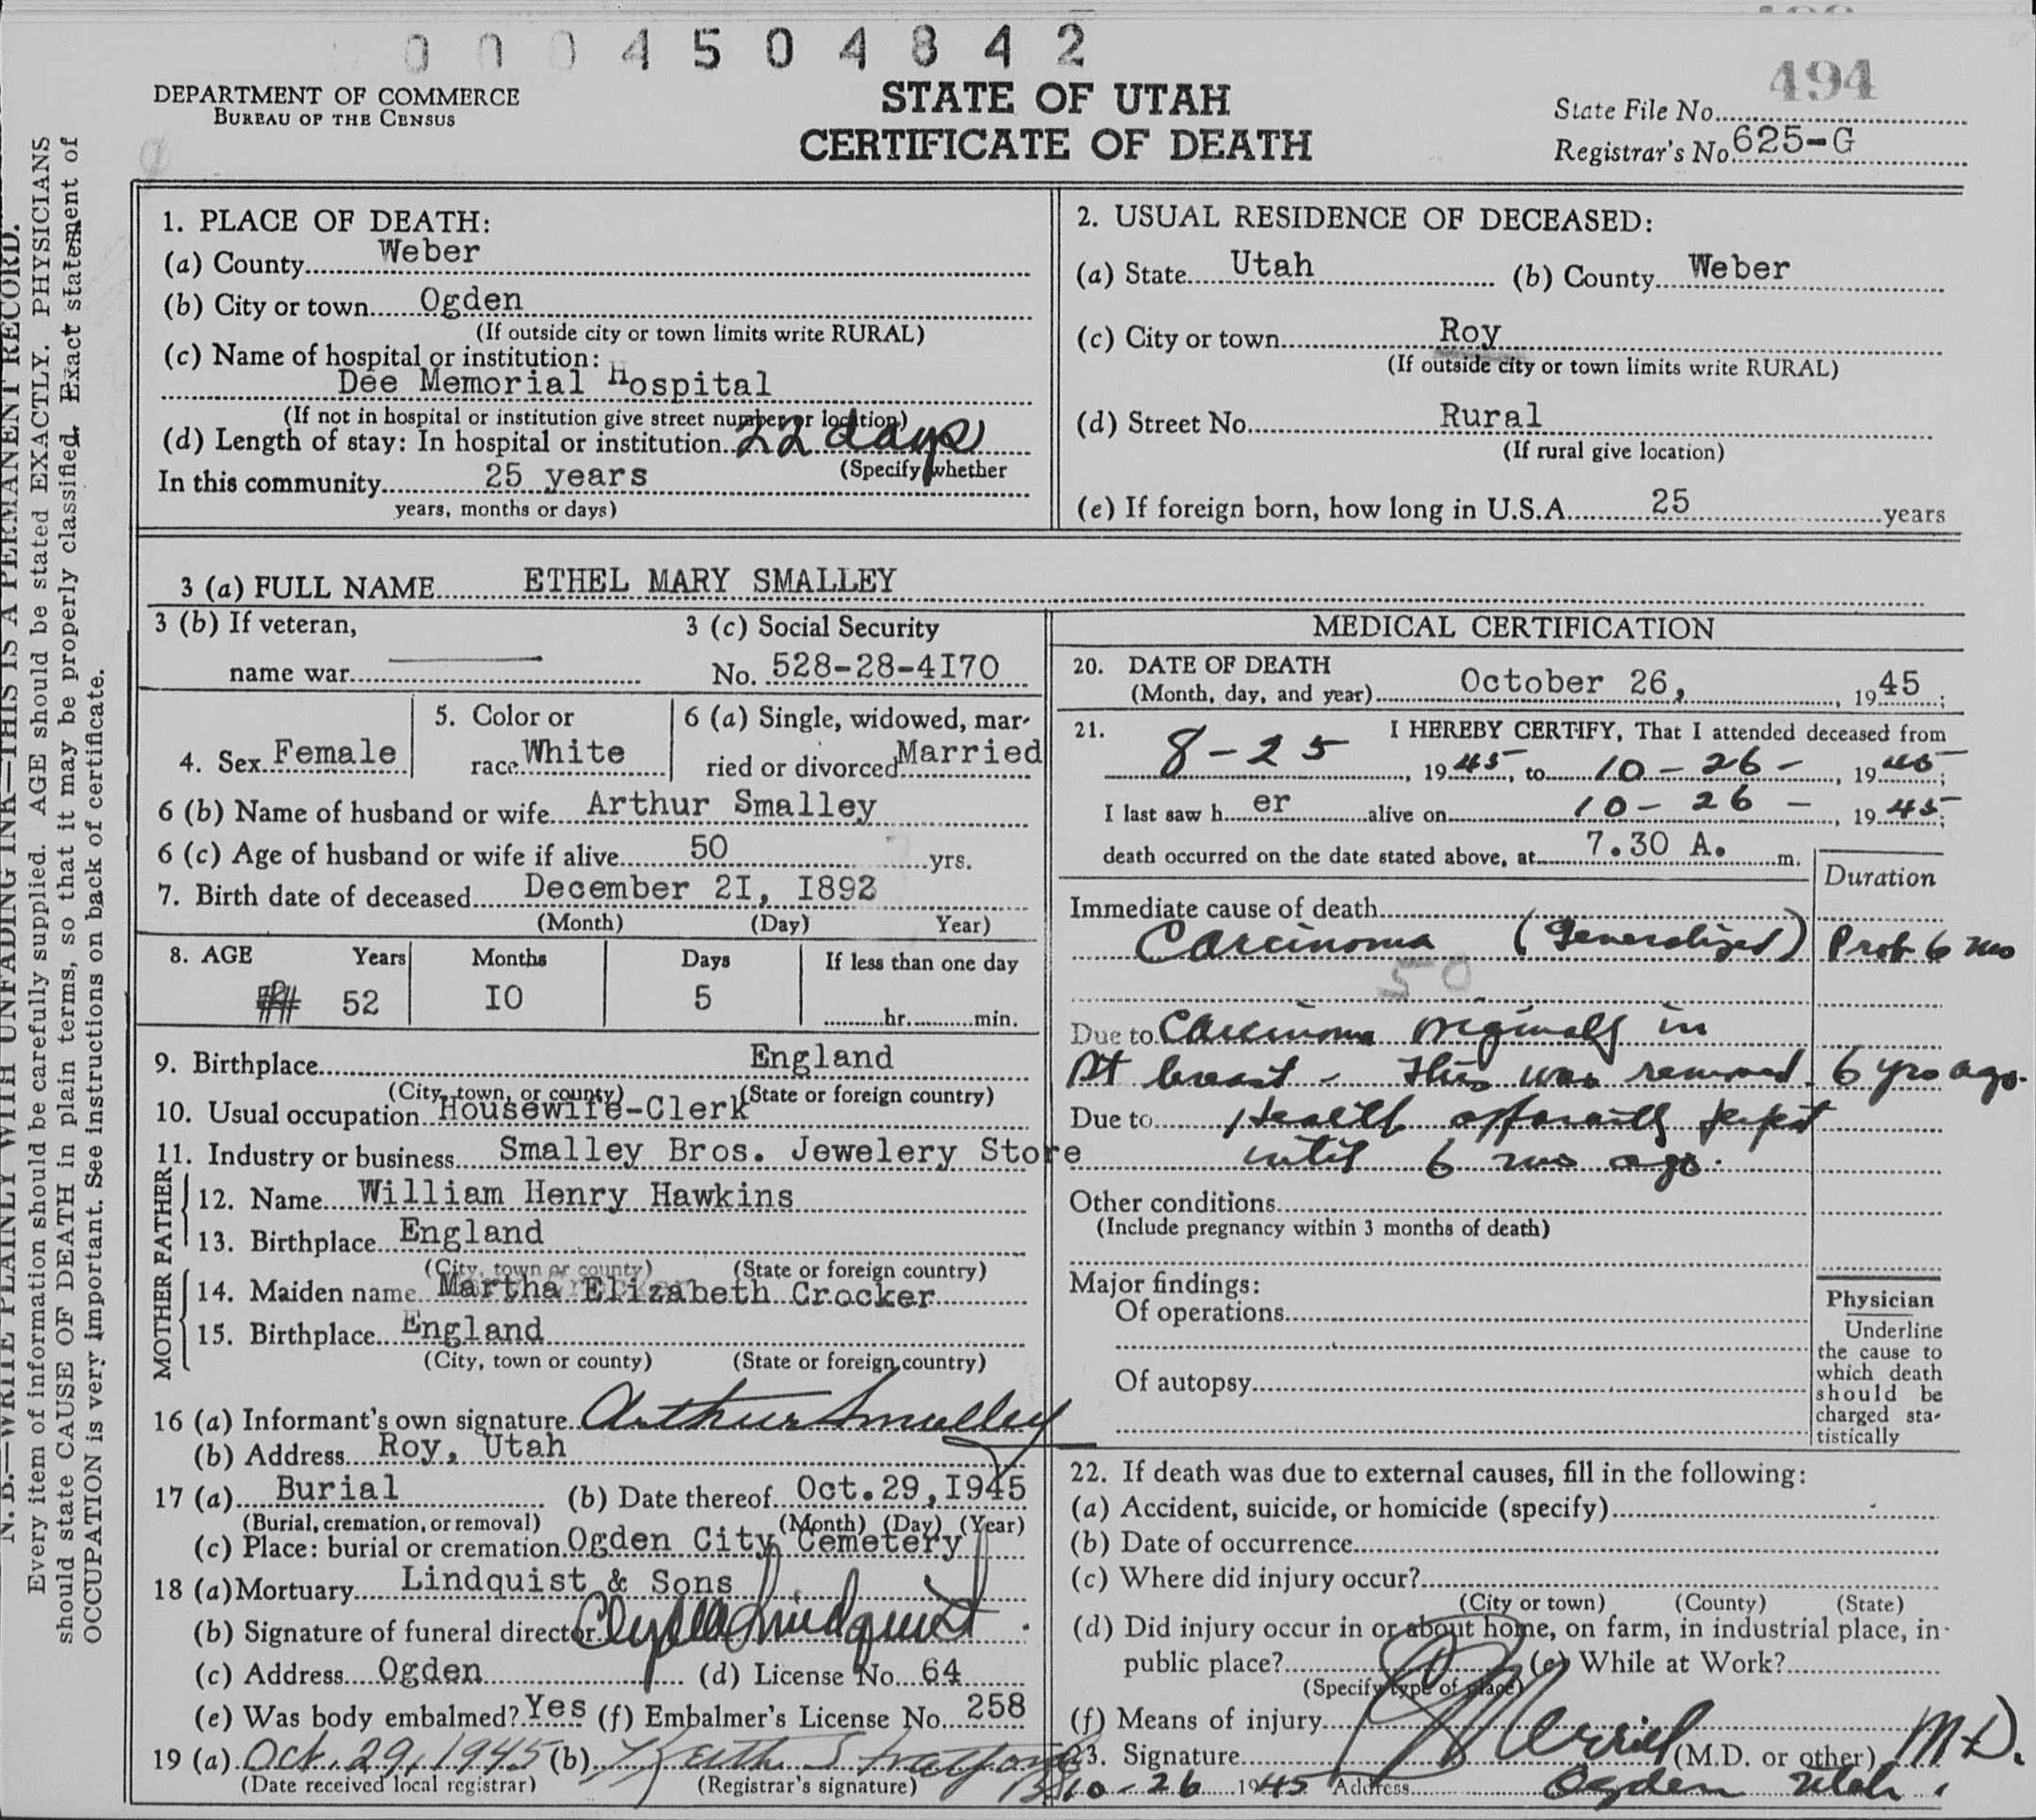 0 0 0 4 5 0 4 8 4 2
494
DEPARTMENT OF COMMERCE
BUREAU OF THE CENSUS
STATE OF UTAH
CERTIFICATE OF DEATH
State File No.
Registrar's No. 625-G
N. B.—WRITE PLAINLY WITH UNFADING INK—THIS IS A PERMANENT RECORD.
Every item of information should be carefully supplied. AGE should be stated EXACTLY. PHYSICIANS
should state CAUSE OF DEATH in plain terms, so that it may be properly classified. Exact statement of
OCCUPATION is very important. See instructions on back of certificate.
1. PLACE OF DEATH:
(a) County Weber
(b) City or town Ogden
(If outside city or town limits write RURAL)
(c) Name of hospital or institution:
Dee Memorial Hospital
(If not in hospital or institution give street number or location)
(d) Length of stay: In hospital or institution 22 days
(Specify whether
In this community 25 years
years, months or days)
2. USUAL RESIDENCE OF DECEASED:
(a) State Utah (b) County Weber
(c) City or town Roy
(If outside city or town limits write RURAL)
(d) Street No. Rural
(If rural give location)
(e) If foreign born, how long in U.S.A. 25 years
3 (a) FULL NAME ETHEL MARY SMALLEY
3 (b) If veteran, 3 (c) Social Security
name war No. 528-28-4I70
5. Color or 6 (a) Single, widowed, mar-
4. Sex Female race White ried or divorced Married
6 (b) Name of husband or wife Arthur Smalley
6 (c) Age of husband or wife if alive 50 yrs.
7. Birth date of deceased December 2I, I892
(Month) (Day) Year)
8. AGE Years Months Days If less than one day
52 IO 5 hr. min.
9. Birthplace England
(City, town, or county) (State or foreign country)
10. Usual occupation Housewife-Clerk
11. Industry or business Smalley Bros. Jewelery Store
FATHER
12. Name William Henry Hawkins
13. Birthplace England
(City, town or county) (State or foreign country)
MOTHER
14. Maiden name Martha Elizabeth Crocker
15. Birthplace England
(City, town or county) (State or foreign country)
16 (a) Informant's own signature Arthur Smalley
(b) Address Roy, Utah
17 (a) Burial (b) Date thereof Oct. 29, I945
(Burial, cremation, or removal) (Month) (Day) (Year)
(c) Place: burial or cremation Ogden City Cemetery
18 (a) Mortuary Lindquist & Sons
(b) Signature of funeral director Lindquist
(c) Address Ogden (d) License No. 64
(e) Was body embalmed? Yes (f) Embalmer's License No. 258
19 (a) Oct. 29, 1945 (b)
(Date received local registrar) (Registrar's signature)
MEDICAL CERTIFICATION
20. DATE OF DEATH
(Month, day, and year) October 26, 1945;
21. I HEREBY CERTIFY, That I attended deceased from
8-25, 1945, to 10-26-, 1945;
I last saw her alive on 10-26-, 1945;
death occurred on the date stated above, at 7.30 A. m.
Duration
Immediate cause of death
Carcinoma (Generalized) Prob 6 mo
50
Due to Carcinoma originally in
breast - This was removed. 6 yrs ago.
Due to Health apparently perfect
until 6 mo ago.
Other conditions
(Include pregnancy within 3 months of death)
Major findings:
Of operations
Of autopsy
Physician
Underline
the cause to
which death
should be
charged sta-
tistically
22. If death was due to external causes, fill in the following:
(a) Accident, suicide, or homicide (specify)
(b) Date of occurrence
(c) Where did injury occur?
(City or town) (County) (State)
(d) Did injury occur in or about home, on farm, in industrial place, in
public place? (e) While at Work?
(Specify type of place)
(f) Means of injury
23. Signature Merrill (M.D. or other) M.D.
10-26 1945 Address Ogden Utah.